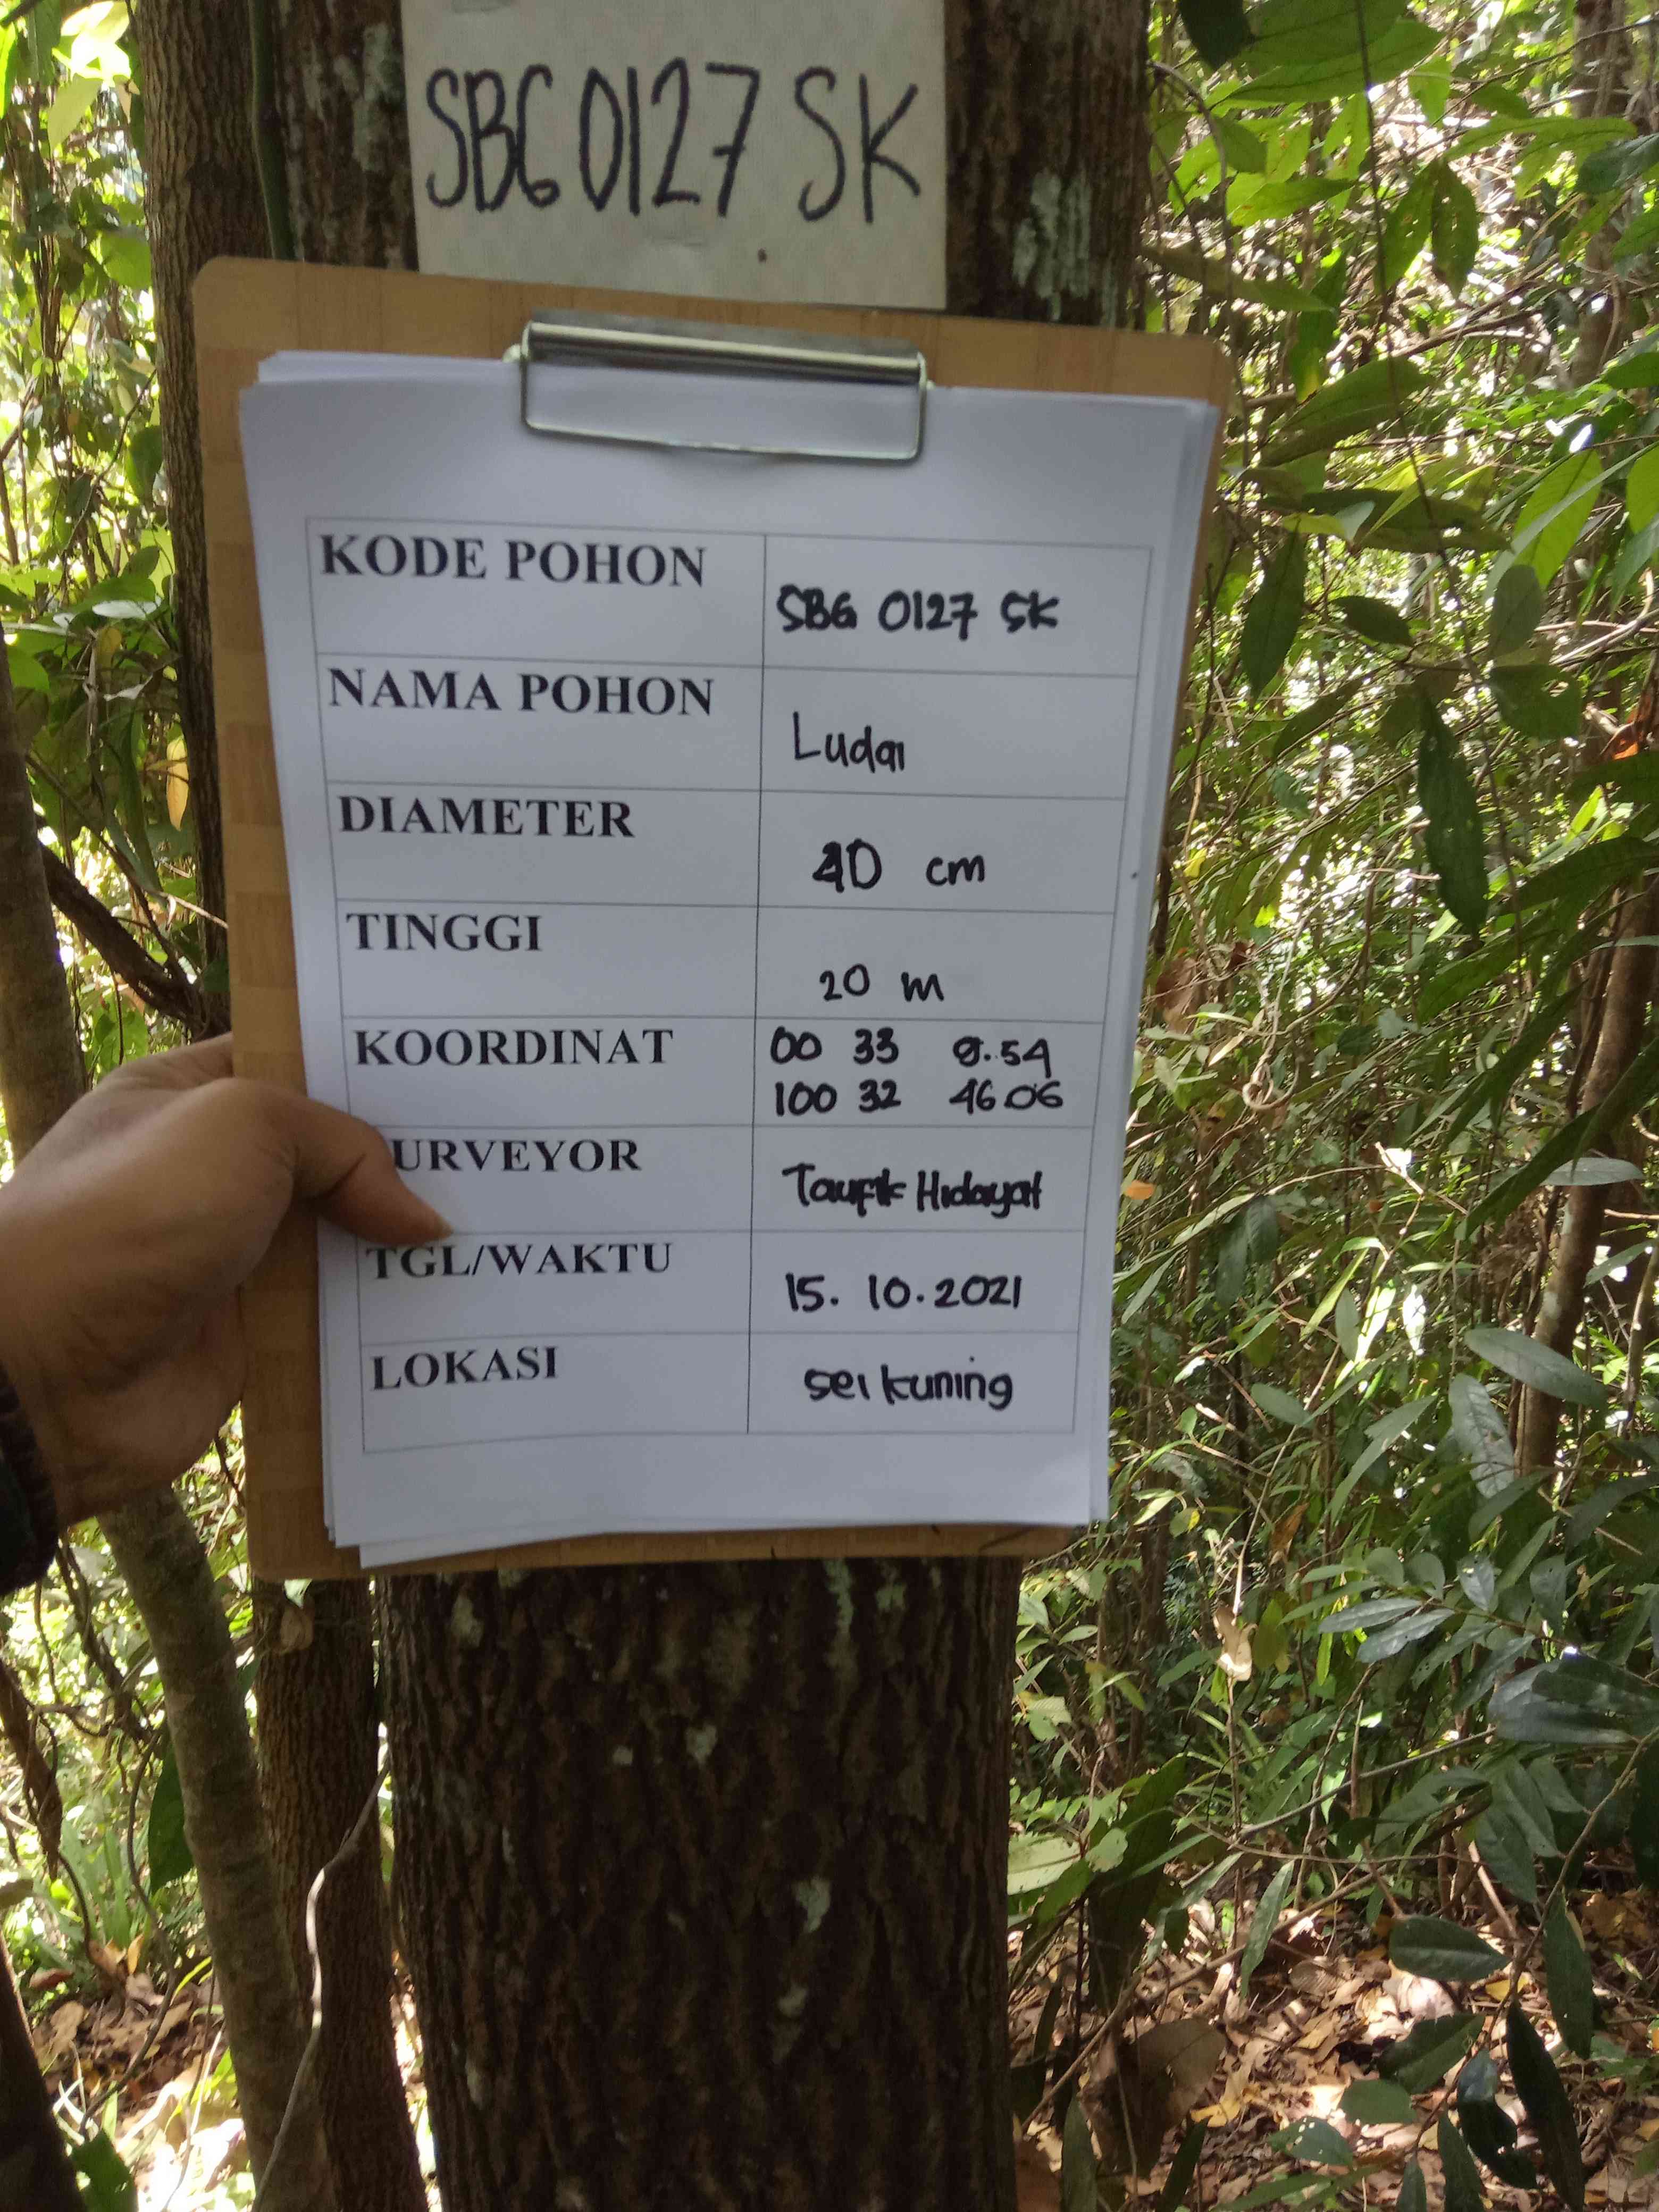 SBG 0127 SK
KODE POHON
SBG 0127 SK
NAMA POHON
Ludai
DIAMETER
40 cm
TINGGI
20 m
KOORDINAT
00 33
100 32 46.06
URVEYOR
Taufik Hidayat
TGL/WAKTU
15. 10. 2021
LOKASI
sei kuning